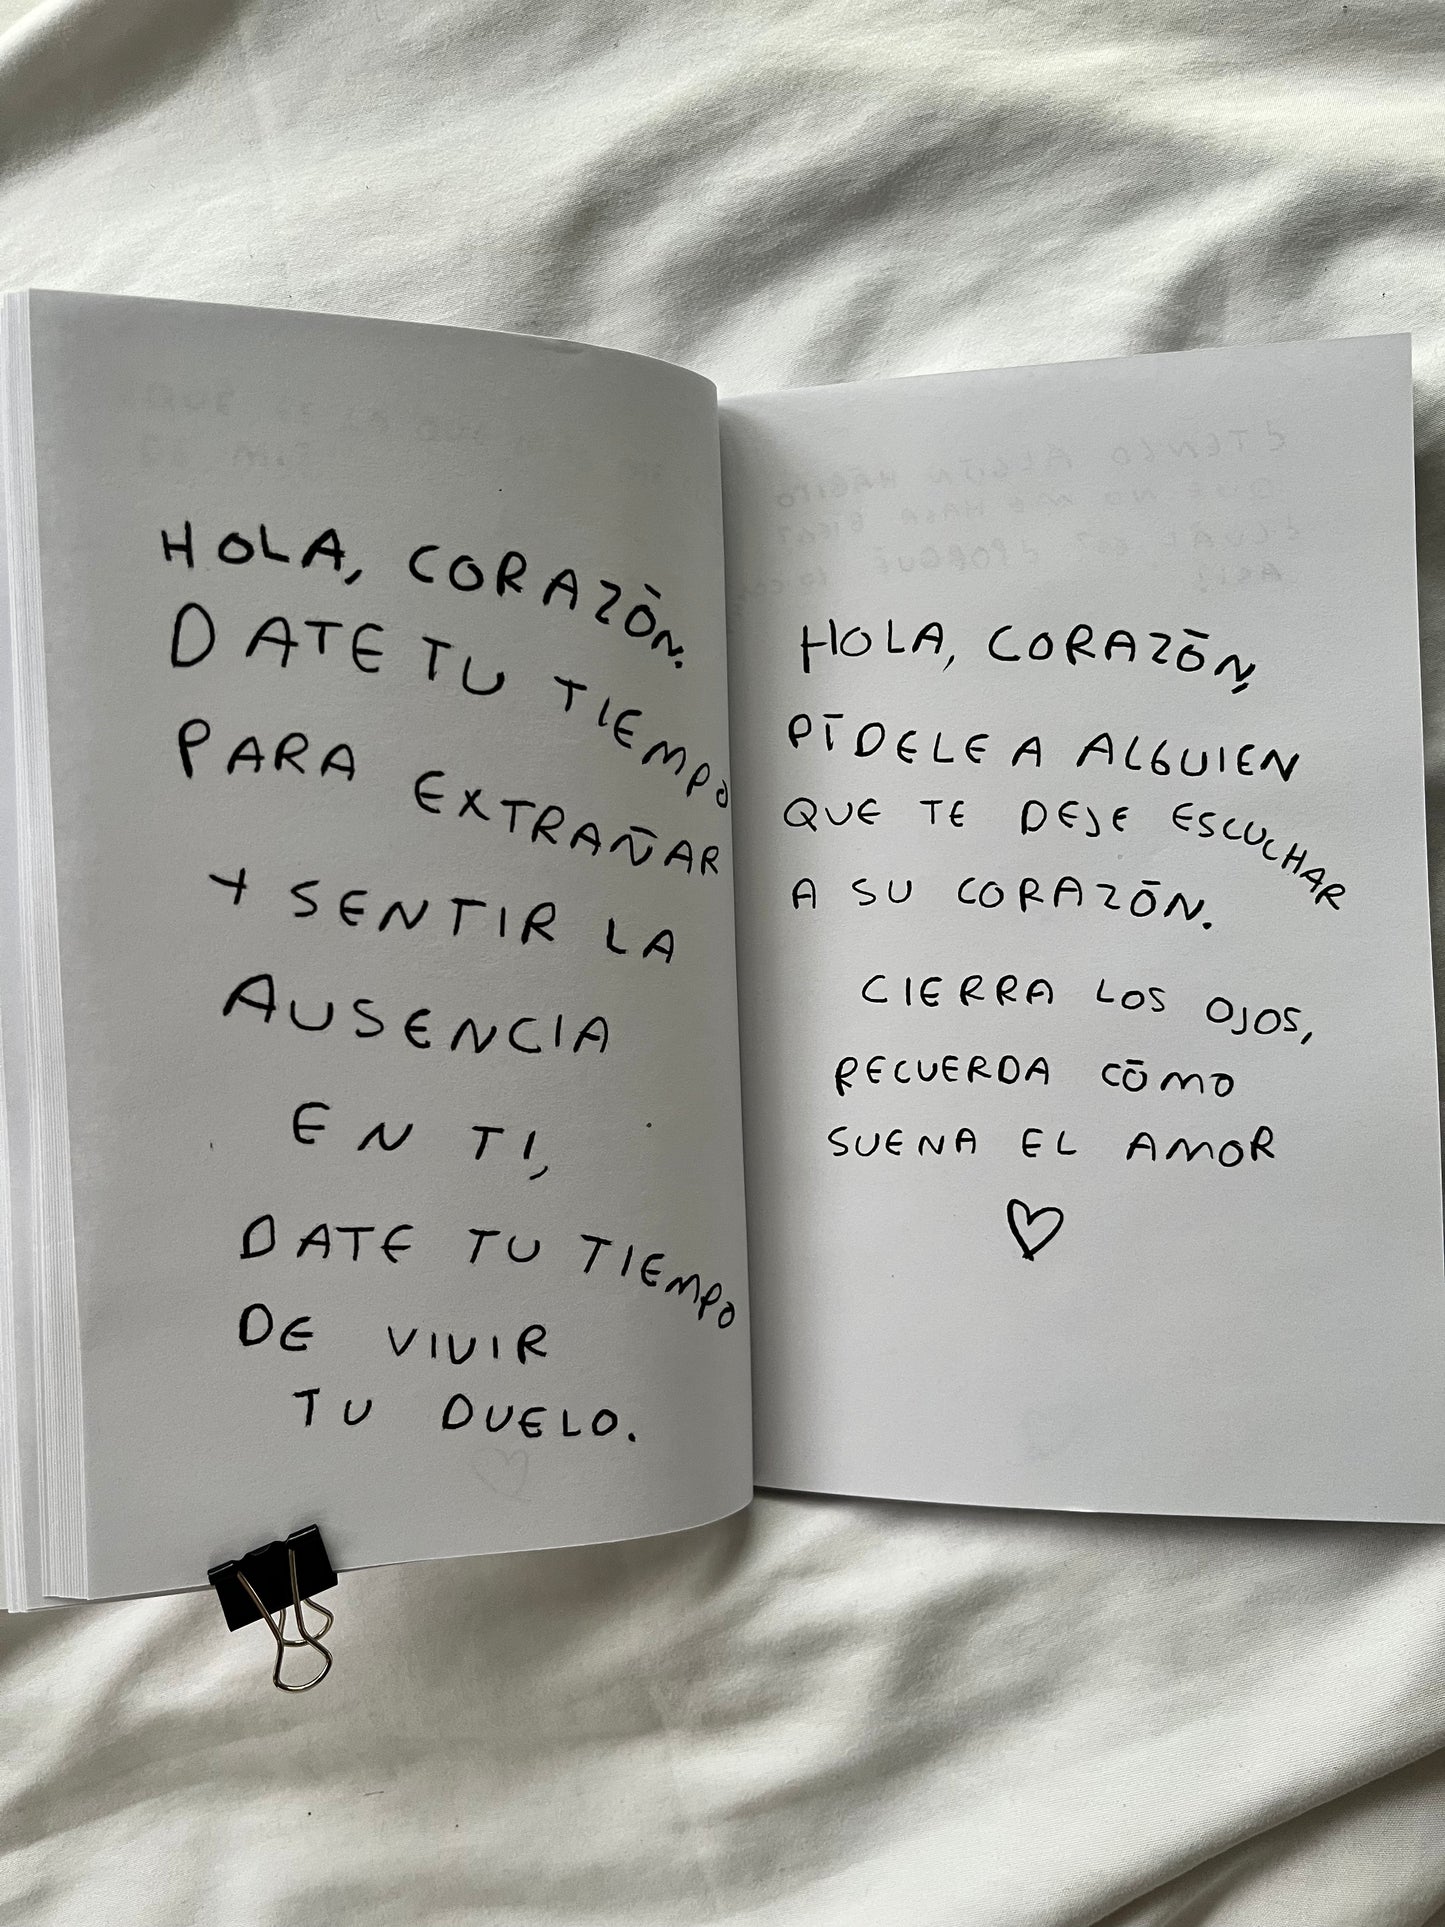 HOLA, CORAZÓN.
DATE TU TIEMPO
PARA EXTRAÑAR
Y SENTIR LA
AUSENCIA
EN TI,
DATE TU TIEMPO
DE VIVIR
TU DUELO.
HOLA, CORAZÓN,
PÍDELE A ALGUIEN
QUE TE DEJE ESCUCHAR
A SU CORAZÓN.
CIERRA LOS OJOS,
RECUERDA CÓMO
SUENA EL AMOR